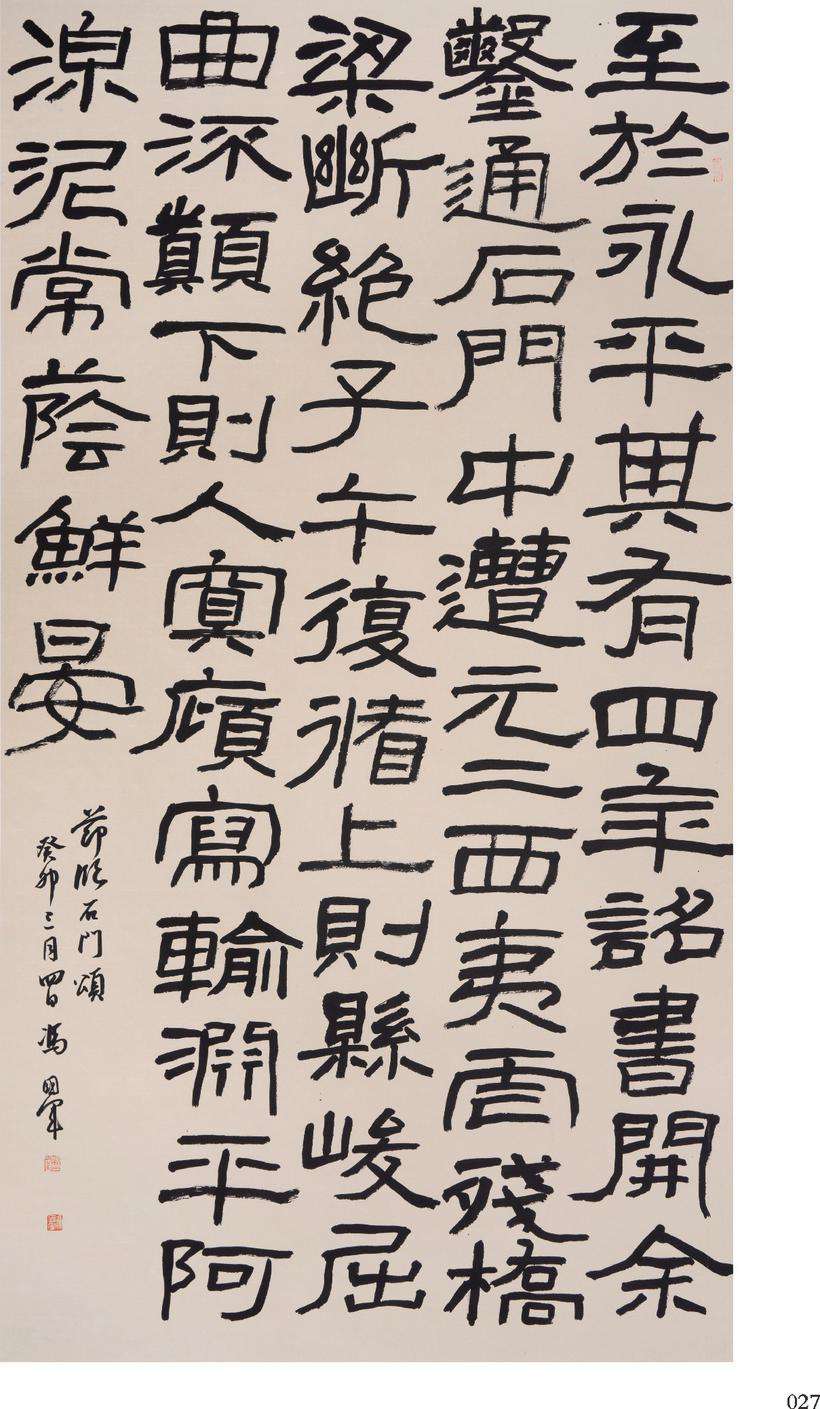 至於永平其有四年詔書開余
鑿通石門中遭元二西夷虐殘橋
梁斷絕子午復循上則縣峻屈
曲流顛下則入寞廎寫輸淵平阿
湶泥常蔭鮮晏
節臨石門頌
癸卯三月四日馮
027